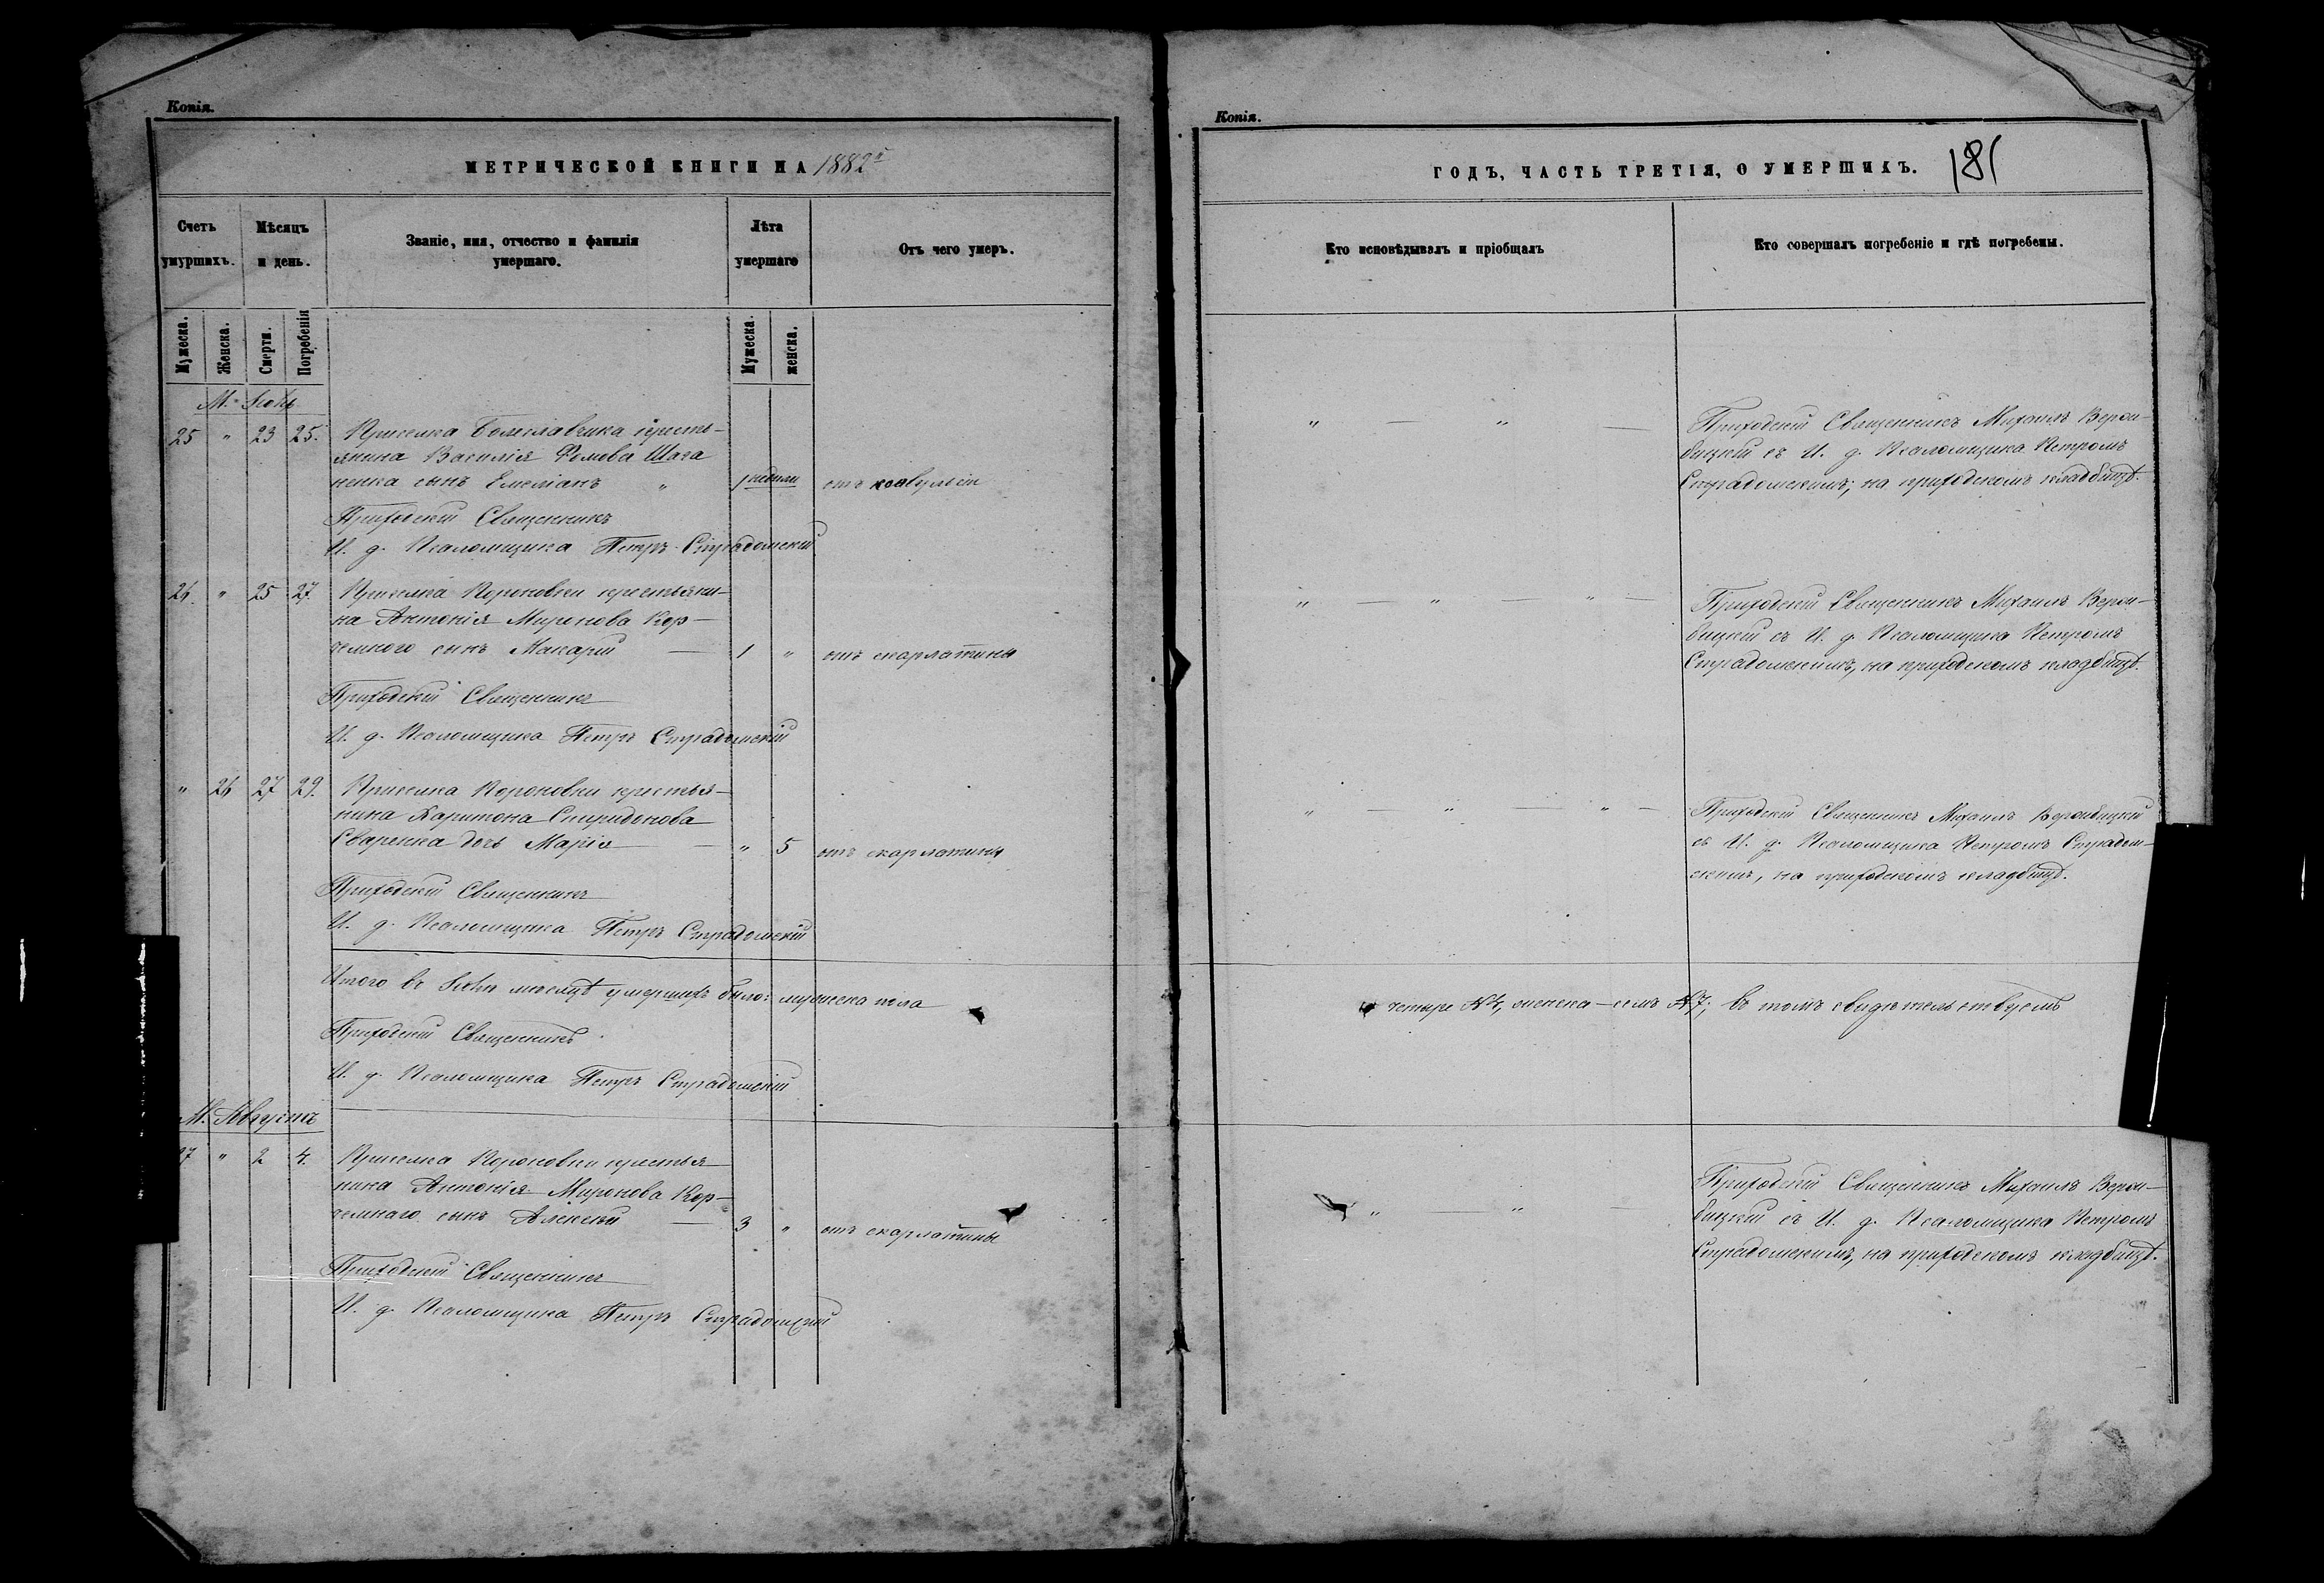 Копія.
МЕТРИЧЕСКОЙ КНИГИ НА 1882й
Счетъ умуршихъ.
Мѣсяцъ и день.
Званіе, имя, отчество и фамилія умершаго.
Лѣта умершаго
Отъ чего умеръ.
Мужеска.
Женска.
Смерти.
Погребенія
Мужеска.
женска.
М.
25 " 23 25.
крестьянина Василія
ненка сынъ Емеліанъ " 1 недѣли
Приходскій Священникъ
И. д. Псаломщика Петръ Страдомскій
26. " 25 27. Приселка Короновки крестьяни-
на Антонія Миронова Кор-
чемного сынъ Макарій — 1 " отъ скарлатины
Приходскій Священникъ
И. д. Псаломщика Петръ Страдомскій
" 26 27 29. Приселка Короновки крестья-
нина Харитона Спиридонова
дочь Марія — " 5 отъ скарлатины
Приходскій Священникъ
И. д. Псаломщика Петръ Страдомскій
Итого въ мѣсяцѣ умершихъ было: мужеска пола
Приходскій Священникъ
И. д. Псаломщика Петръ Страдомскій
М. Августъ
27 " 2 4. Приселка Короновки крестья-
нина Антонія Миронова Кор-
чемнаго сынъ Алексѣй — 3 " отъ скарлатины
Приходскій Священникъ
И. д. Псаломщика Петръ Страдомскій
Копія.
ГОДЪ, ЧАСТЬ ТРЕТІЯ, О УМЕРШИХЪ. 181
Кто исповѣдывалъ и пріобщалъ
Кто совершалъ погребеніе и гдѣ погребены.
" — " — Приходскій Священникъ Михаилъ
съ И. д. Псаломщика Петромъ
Страдомскимъ, на приходскомъ кладбищѣ.
" — " — " — Приходскій Священникъ Михаилъ
съ И. д. Псаломщика Петромъ
Страдомскимъ, на приходскомъ кладбищѣ.
" — " — " — Приходскій Священникъ Михаилъ
съ И. д. Псаломщика Петромъ Страдом-
скимъ, на приходскомъ кладбищѣ.
четыре №4, женска — семь №7; въ томъ свидѣтельствуемъ
" — " — Приходскій Священникъ Михаилъ
съ И. д. Псаломщика Петромъ
Страдомскимъ, на приходскомъ кладбищѣ.